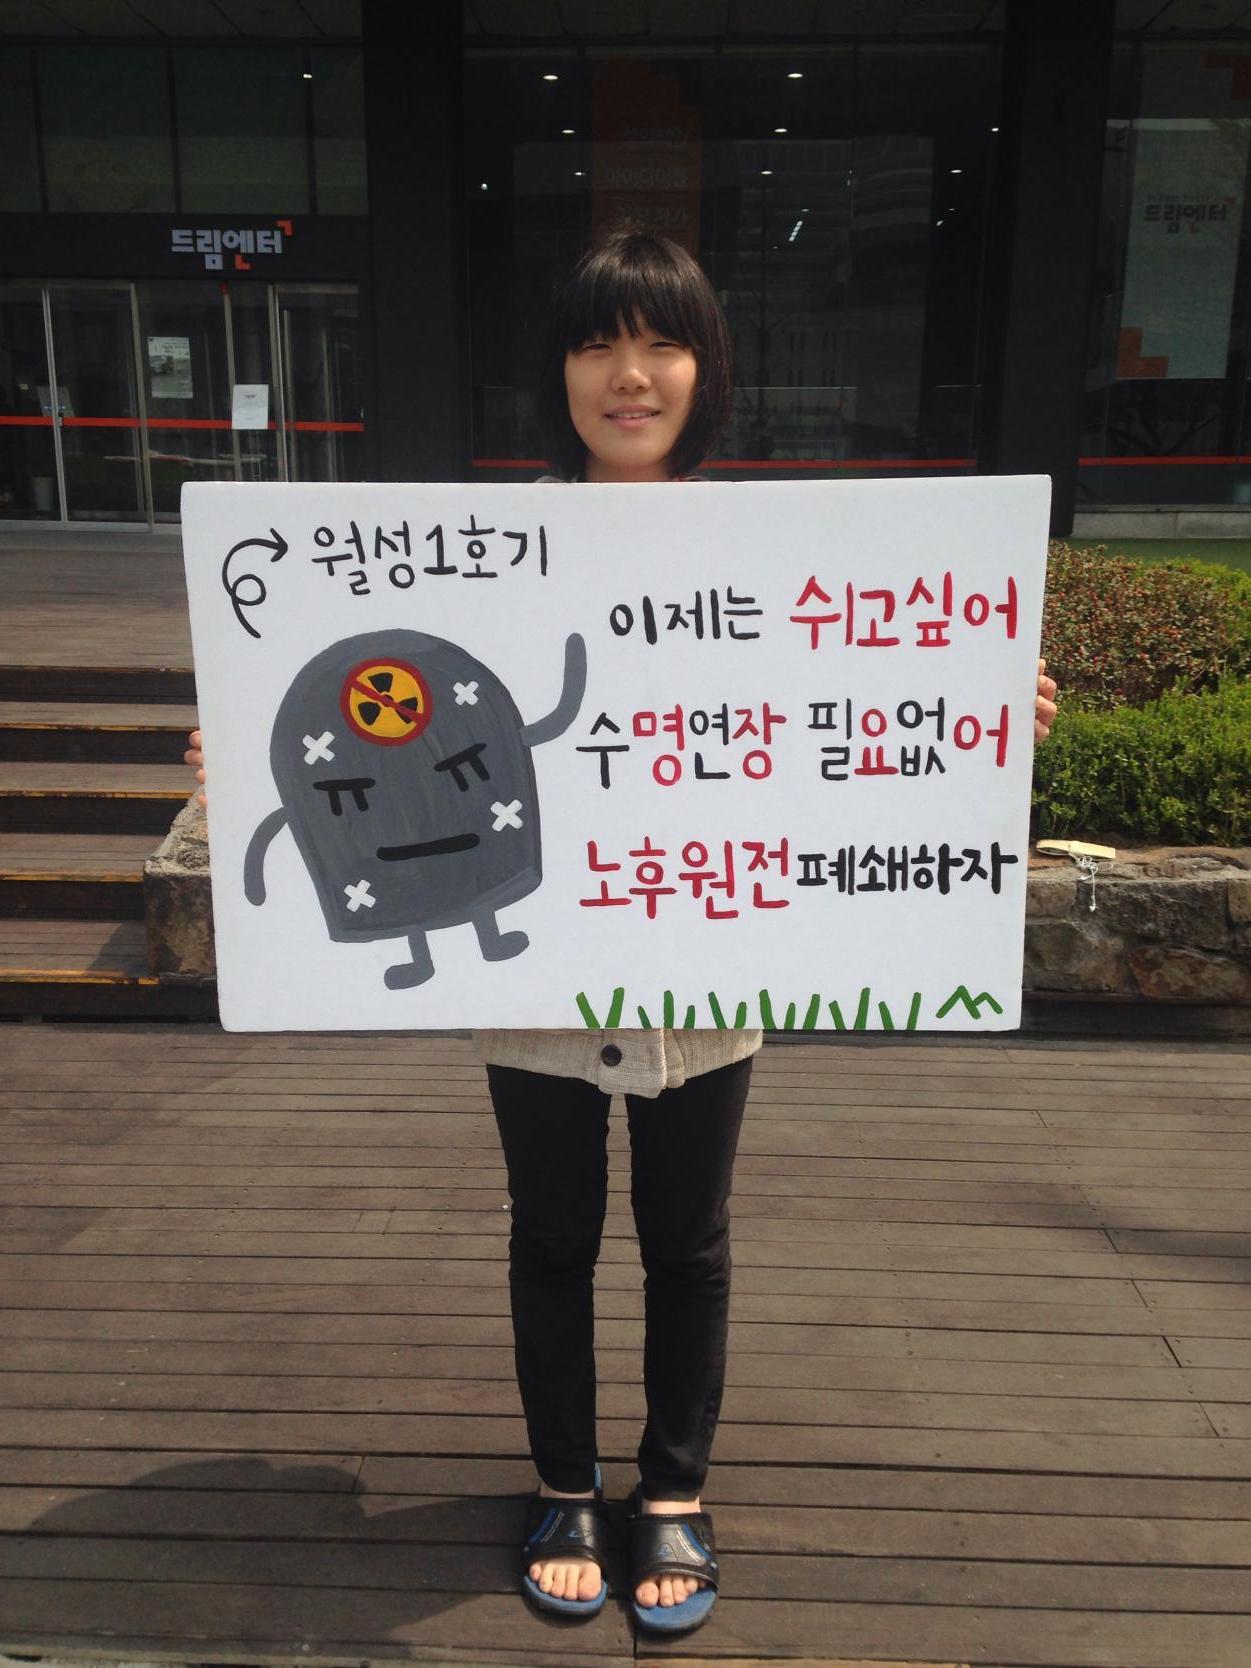 드림엔터
아이디어를
드림엔터
월성1호기
이제는 쉬고싶어
수명연장 필요없어
노후원전폐쇄하자